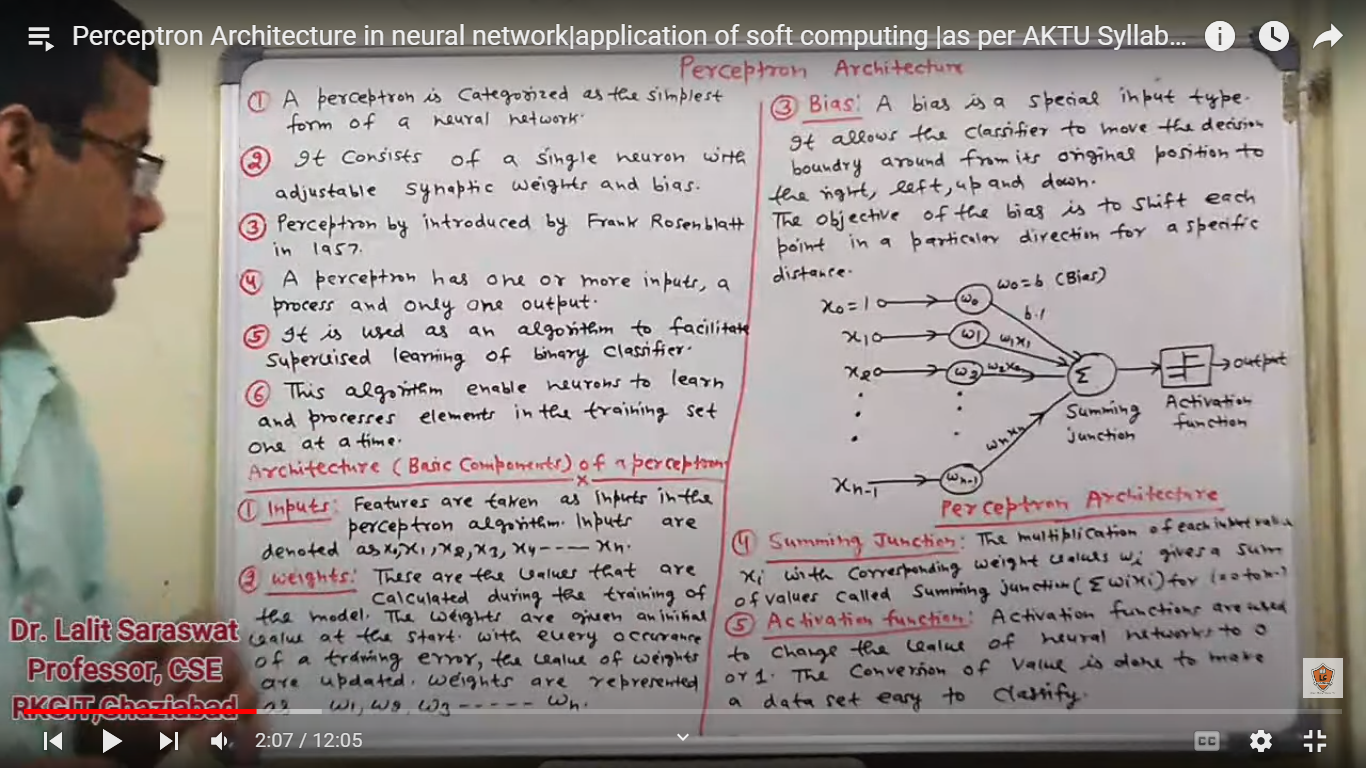 Perceptron Architecture in neural network|application of soft computing |as per AKTU Syllab...
Perceptron Architecture
① A perceptron is Categorized as the simplest
form of a neural network.
② It Consists of a single neuron with
adjustable synaptic weights and bias.
③ Perceptron by introduced by Frank Rosenblatt
in 1957.
④ A perceptron has one or more inputs, a
process and only one output.
⑤ It is used as an algorithm to facilitate
supervised learning of binary classifier.
⑥ This algorithm enable neurons to learn
and processes elements in the training set
one at a time.
Architecture (Basic Components) of a perceptron
① Inputs: Features are taken as inputs in the
perceptron algorithm. Inputs are
denoted as x0, x1, x2, x3, x4 ---- xn.
② weights: These are the values that are
Calculated during the training of
the model. The weights are given an initial
value at the start. with every occurance
of a training error, the value of weights
are updated. weights are represented
as w1, w2, w3 ----- wn.
③ Bias: A bias is a special input type.
It allows the classifier to move the decision
boundry around from its original position to
the right, left, up and down.
The objective of the bias is to shift each
point in a particular direction for a specific
distance.
w0 = b (Bias)
x0 = 1 w0 b.1
x1 w1 w1x1
x2 w2 w2x2
Σ output
Summing
junction
Activation
function
wnxn
xn-1 wn-1
Perceptron Architecture
④ Summing Junction: The multiplication of each input value
xi with corresponding weight values wi gives a sum
of values called Summing junction (Σ wixi) for i=0 to n-1
⑤ Activation function: Activation functions are used
to change the value of neural networks to 0
or 1. The Conversion of value is done to make
a data set easy to Classify.
Dr. Lalit Saraswat
Professor, CSE
RKGIT,Ghaziabad
2:07 / 12:05
CC